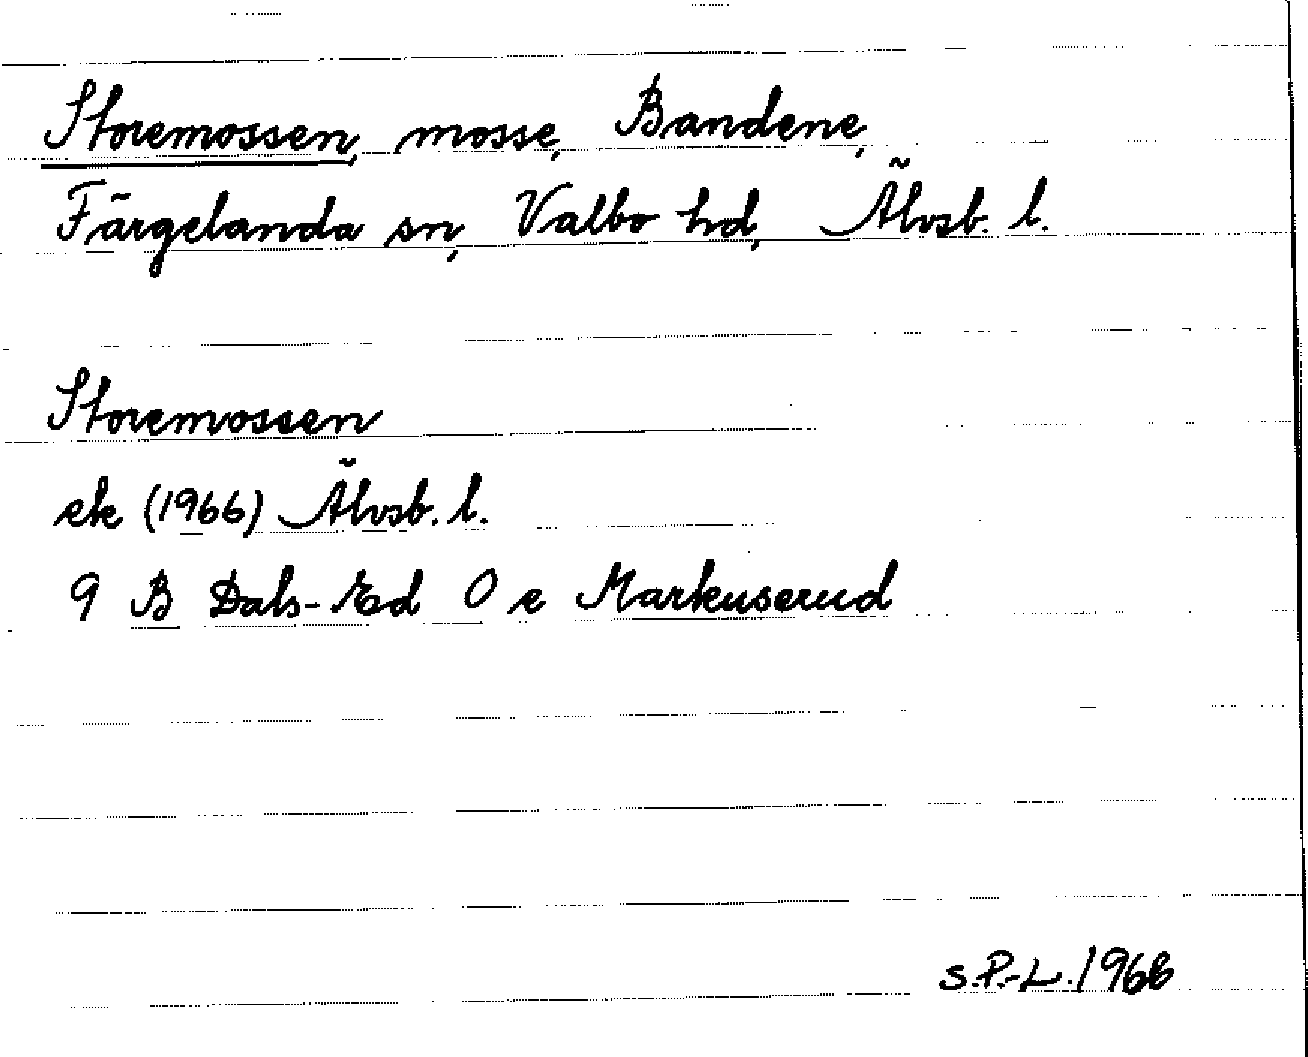 Storemossen, mosse, Bandene,
Färgelanda sn, Valbo hd, Älvsb. l.
Storemossen
ek (1966) Älvsb. l.
9 B Dals-Ed 0 e Markuserud
S.P.-L. 1968